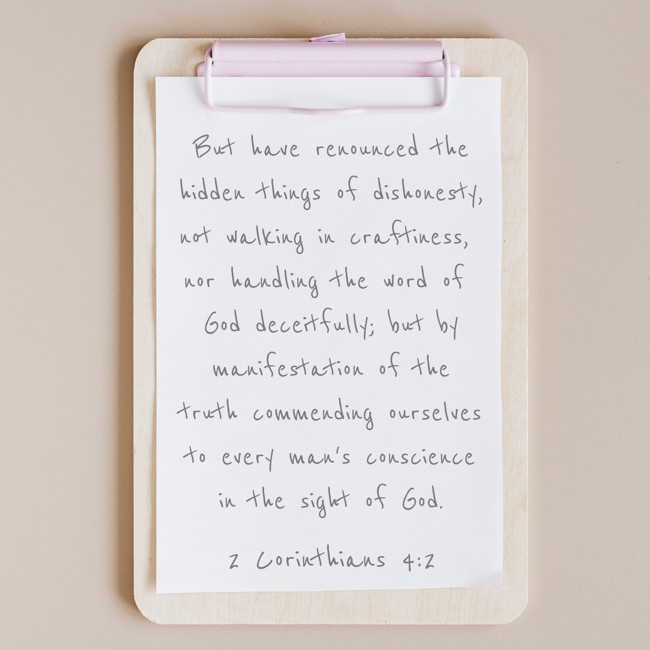 But have renounced the
hidden things of dishonesty,
not walking in craftiness,
nor handling the word of
God deceitfully; but by
manifestation of the
truth commending ourselves
to every man's conscience
in the sight of God.
2 Corinthians 4:2